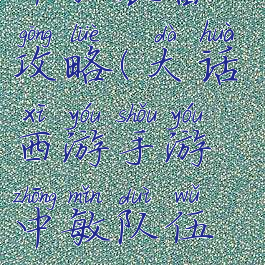 gōng lüè dà huà
攻略(大话
xī yóu shǒu yóu
西游手游
zhōng mǐn duì wǔ
中敏队伍